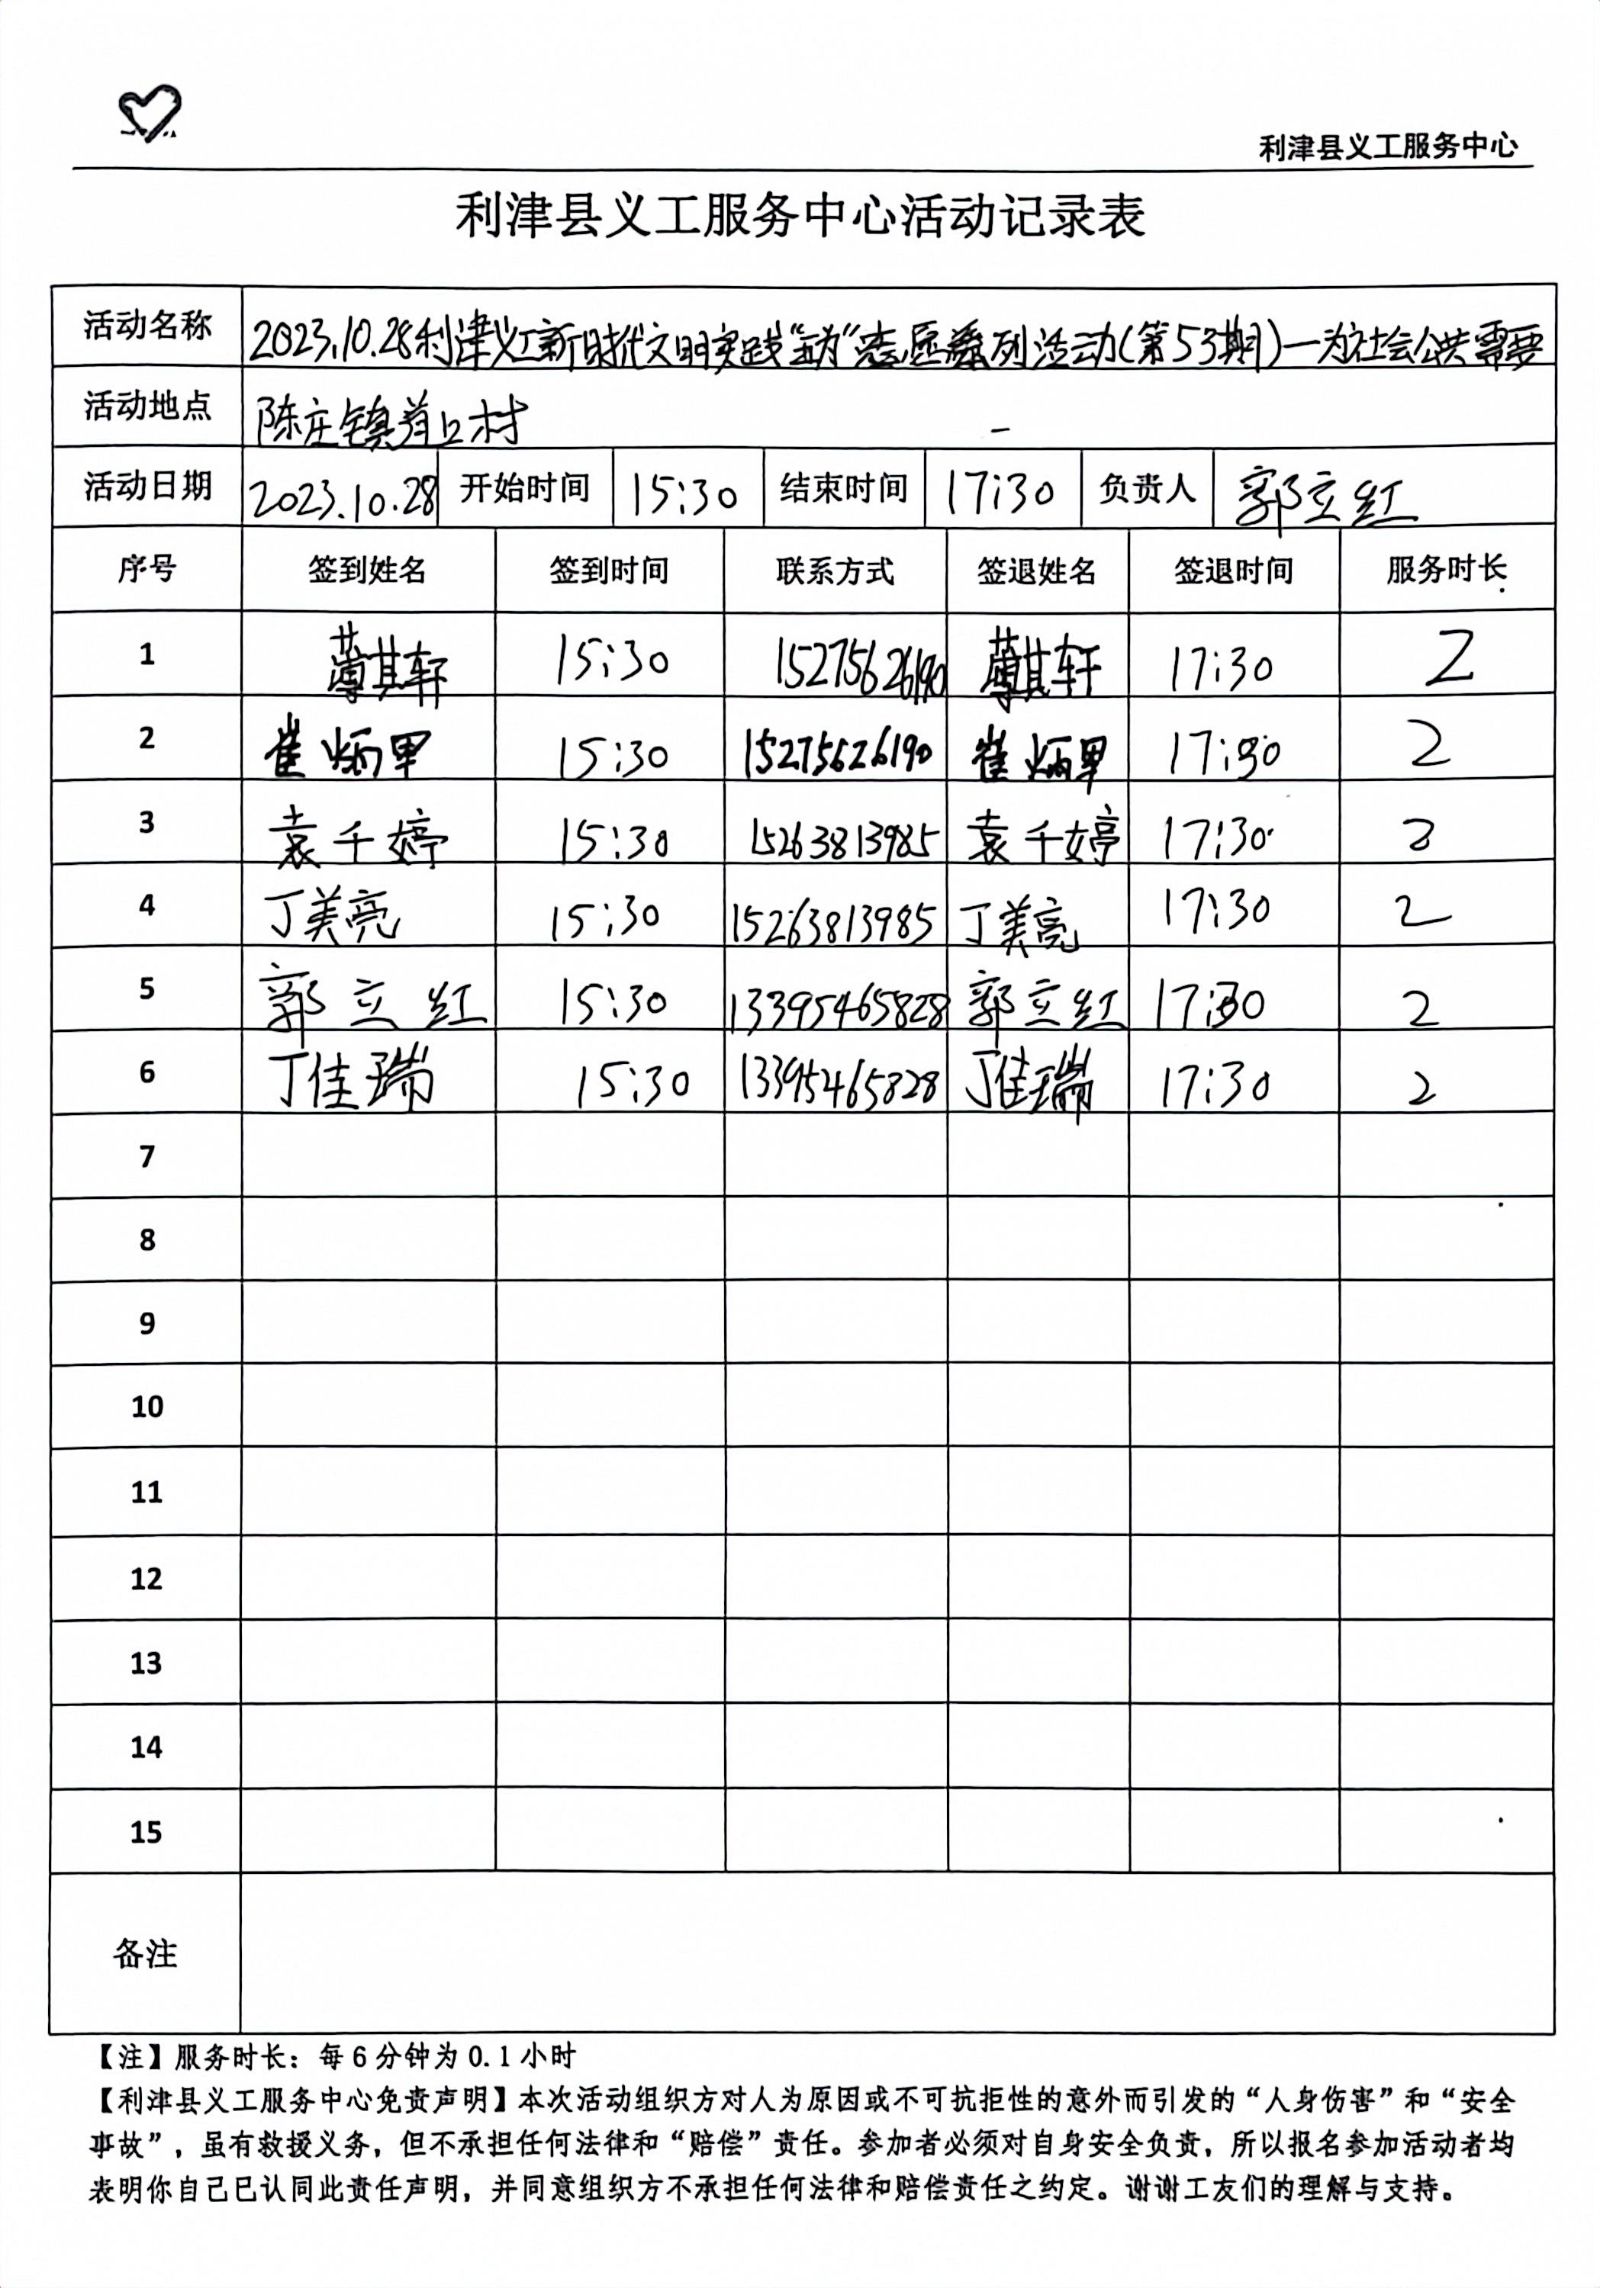 利津县义工服务中心
利津县义工服务中心活动记录表
活动名称 2023.10.28利津义工新时代文明实践“五为”志愿系列活动(第53期)—为社会公共需要
活动地点 陈庄镇 村
活动日期 2023.10.28 开始时间 15:30 结束时间 17:30 负责人 郭立红
序号 签到姓名 签到时间 联系方式 签退姓名 签退时间 服务时长
1 薄其轩 15:30 15275626190 薄其轩 17:30 2
2 崔炳甲 15:30 15275626190 崔炳甲 17:30 2
3 袁千婷 15:30 15263813985 袁千婷 17:30 2
4 丁美亮 15:30 15263813985 丁美亮 17:30 2
5 郭立红 15:30 13395465828 郭立红 17:30 2
6 丁佳瑞 15:30 13395465828 丁佳瑞 17:30 2
7
8
9
10
11
12
13
14
15
备注
【注】服务时长：每6分钟为0.1小时
【利津县义工服务中心免责声明】本次活动组织方对人为原因或不可抗拒性的意外而引发的“人身伤害”和“安全
事故”，虽有救援义务，但不承担任何法律和“赔偿”责任。参加者必须对自身安全负责，所以报名参加活动者均
表明你自己已认同此责任声明，并同意组织方不承担任何法律和赔偿责任之约定。谢谢工友们的理解与支持。